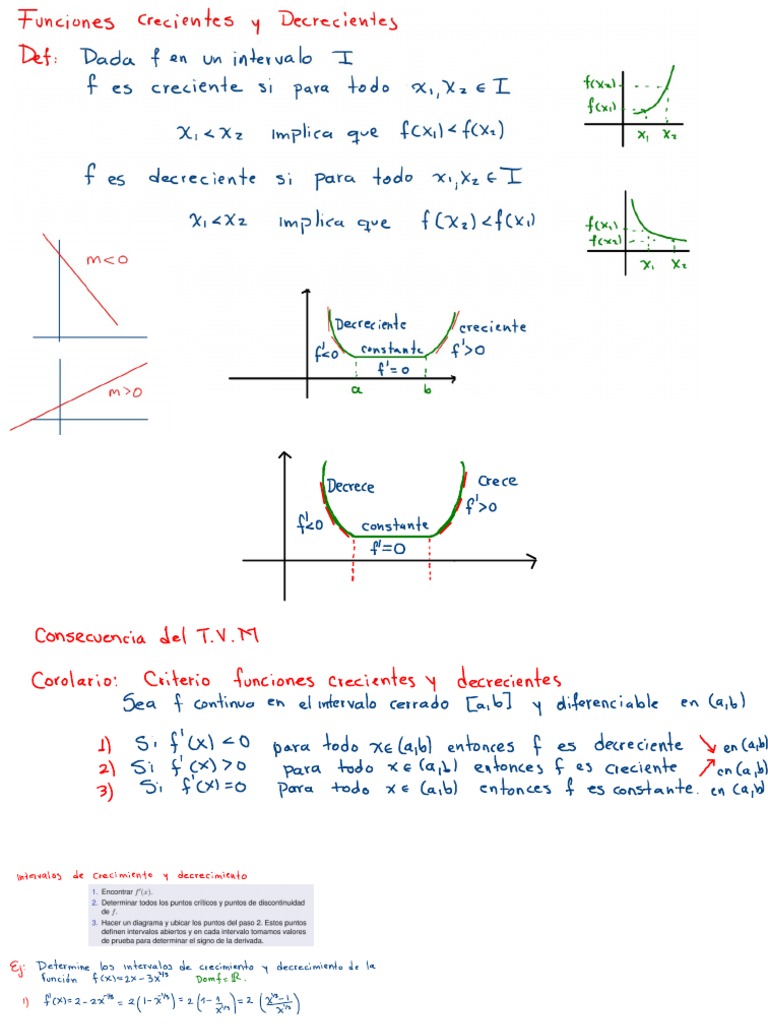 Funciones crecientes y Decrecientes
Def: Dada f en un intervalo I
f es creciente si para todo x₁, x₂ ∈ I
x₁ < x₂ implica que f(x₁) < f(x₂)
f(x₂)
f(x₁)
x₁ x₂
f es decreciente si para todo x₁, x₂ ∈ I
x₁ < x₂ implica que f(x₂) < f(x₁)
f(x₁)
f(x₂)
x₁ x₂
m<0
m>0
Decreciente
creciente
f'<0
constante
f'>0
f'=0
a b
Decrece
Crece
f'<0
constante
f'>0
f'=0
Consecuencia del T.V.M
Corolario: Criterio funciones crecientes y decrecientes
Sea f continua en el intervalo cerrado [a,b] y diferenciable en (a,b)
1) Si f'(x) < 0 para todo x∈(a,b) entonces f es decreciente ↘ en (a,b)
2) Si f'(x) > 0 para todo x∈(a,b) entonces f es creciente ↗ en (a,b)
3) Si f'(x) = 0 para todo x∈(a,b) entonces f es constante. en (a,b)
Intervalos de crecimiento y decrecimiento
1. Encontrar f'(x).
2. Determinar todos los puntos críticos y puntos de discontinuidad
de f.
3. Hacer un diagrama y ubicar los puntos del paso 2. Estos puntos
definen intervalos abiertos y en cada intervalo tomamos valores
de prueba para determinar el signo de la derivada.
Ej: Determine los intervalos de crecimiento y decrecimiento de la
función f(x)=2x-3x^(2/3) Dom f = ℝ.
1) f'(x)=2-2x^(-1/3) = 2(1-x^(-1/3)) = 2(1-1/x^(1/3)) = 2((x^(1/3)-1)/x^(1/3))